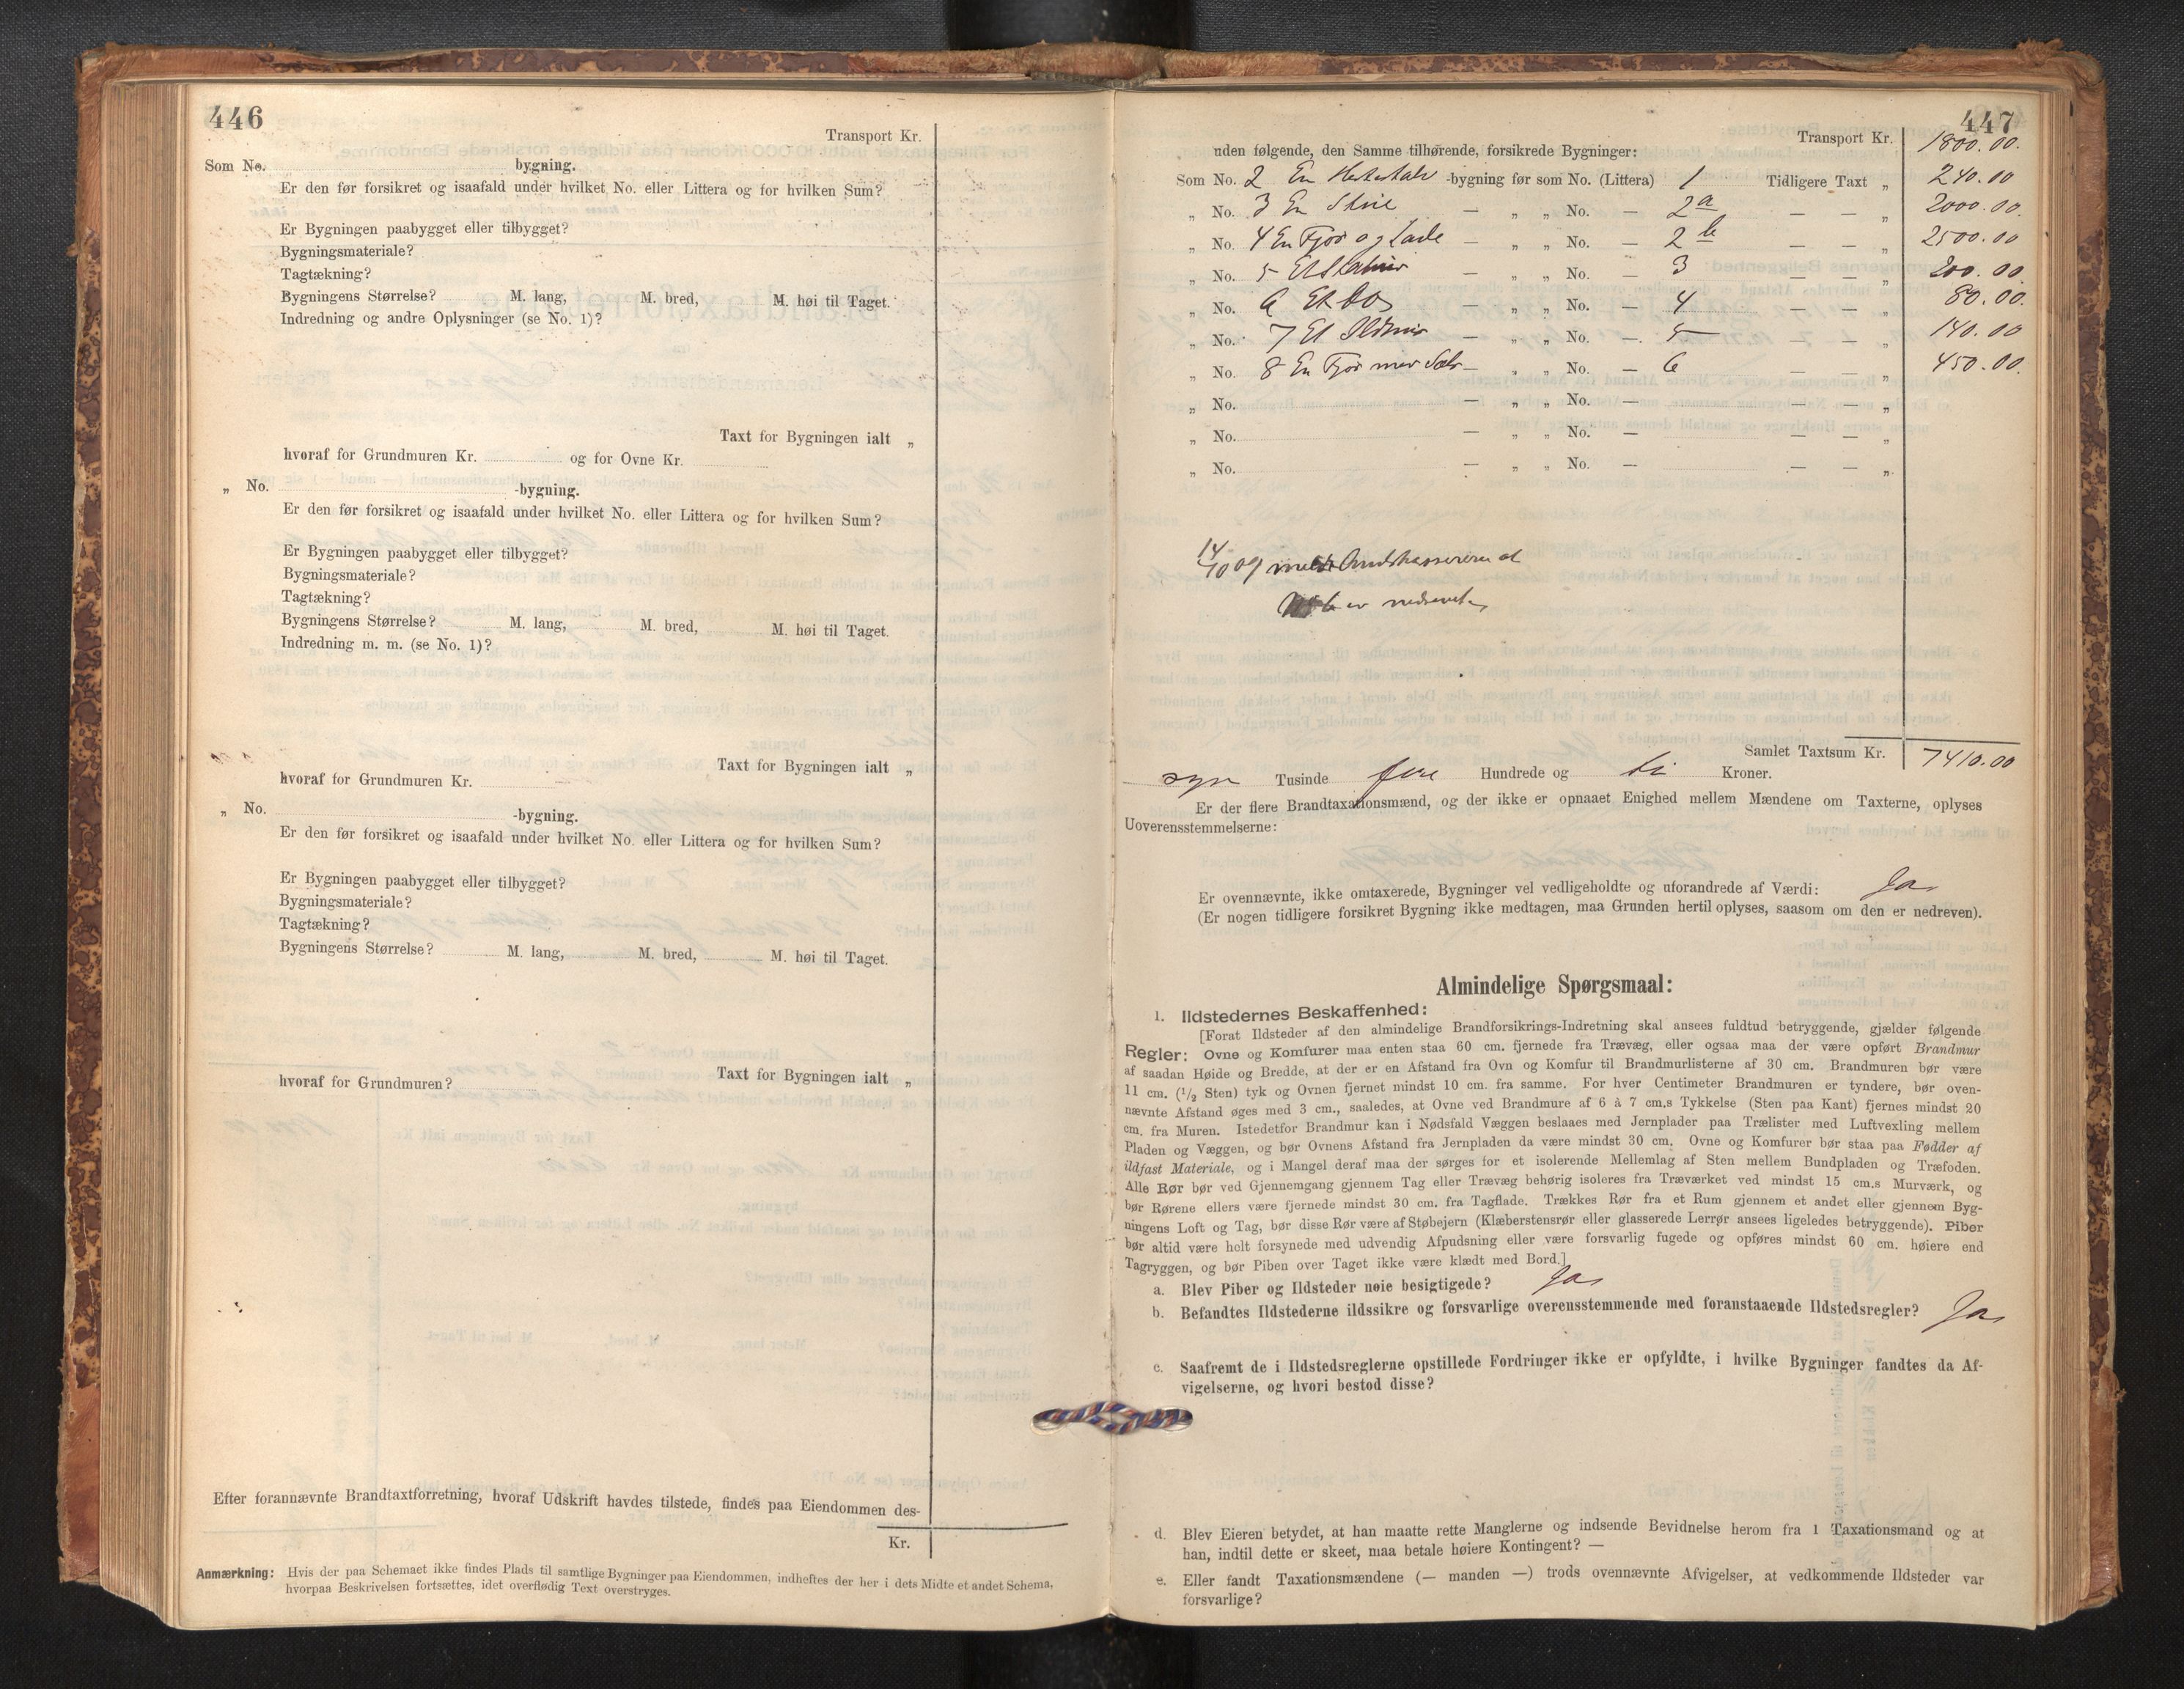 446
Transport Kr.
Som No. bygning.
Er den før forsikret og isaafald under hvilket No. eller Littera og for hvilken Sum?
Er Bygningen paabygget eller tilbygget?
Bygningsmateriale?
Tagtækning?
Bygningens Størrelse? M. lang, M. bred, M. høi til Taget.
Indredning og andre Oplysninger (se No. 1)?
Taxt for Bygningen ialt „
hvoraf for Grundmuren Kr. og for Ovne Kr.
„ No. -bygning.
Er den før forsikret og isaafald under hvilket No. eller Littera og for hvilken Sum?
Er Bygningen paabygget eller tilbygget?
Bygningsmateriale?
Tagtækning?
Bygningens Størrelse? M. lang, M. bred, M. høi til Taget.
Indredning m. m. (se No. 1)?
Taxt for Bygningen ialt „
hvoraf for Grundmuren Kr.
„ No. -bygning.
Er den før forsikret og isaafald under hvilket No. eller Littera og for hvilken Sum?
Er Bygningen paabygget eller tilbygget?
Bygningsmateriale?
Tagtækning?
Bygningens Størrelse? M. lang, M. bred, M. høi til Taget.
Taxt for Bygningen ialt „
hvoraf for Grundmuren?
Efter forannævnte Brandtaxtforretning, hvoraf Udskrift havdes tilstede, findes paa Eiendommen des-
Kr.
Anmærkning: Hvis der paa Schemaet ikke findes Plads til samtlige Bygninger paa Eiendommen, indheftes der her i dets Midte et andet Schema,
hvorpaa Beskrivelsen fortsættes, idet overflødig Text overstryges.
447
Transport Kr. 1800.00.
uden følgende, den Samme tilhørende, forsikrede Bygninger:
Som No. 2 En -bygning før som No. (Littera) 1 Tidligere Taxt „ 240.00
„ No. 3 En — „ „ No. — 2a — — „ 2000.00.
„ No. 4 En Fjøs og Lade — „ „ No. — 2b — — „ 2500.00
„ No. 5 — „ „ No. — 3 — — „ 200.00
„ No. 6 Et — „ „ No. — 4 — — „ 80.00.
„ No. 7 Et Ildhus — „ „ No. — 5 — — „ 140.00
„ No. 8 En Fjøs med — „ „ No. — 6 — — „ 450.00.
„ No. — „ „ No. — — — „
„ No. — „ „ No. — — — „
„ No. — „ „ No. — — — „
14/10 09
6 er nedrevet
Samlet Taxtsum Kr. 7410.00
syv Tusinde fire Hundrede og ti Kroner.
Er der flere Brandtaxationsmænd, og der ikke er opnaaet Enighed mellem Mændene om Taxterne, oplyses
Uoverensstemmelserne:
Er ovennævnte, ikke omtaxerede, Bygninger vel vedligeholdte og uforandrede af Værdi: Ja
(Er nogen tidligere forsikret Bygning ikke medtagen, maa Grunden hertil oplyses, saasom om den er nedreven).
Almindelige Spørgsmaal:
1. Ildstedernes Beskaffenhed:
[Forat Ildsteder af den almindelige Brandforsikrings-Indretning skal ansees fuldtud betryggende, gjælder følgende
Regler: Ovne og Komfurer maa enten staa 60 cm. fjernede fra Trævæg, eller ogsaa maa der være opført Brandmur
af saadan Høide og Bredde, at der er en Afstand fra Ovn og Komfur til Brandmurlisterne af 30 cm. Brandmuren bør være
11 cm. (1/2 Sten) tyk og Ovnen fjernet mindst 10 cm. fra samme. For hver Centimeter Brandmuren er tyndere, bør oven-
nævnte Afstand øges med 3 cm., saaledes, at Ovne ved Brandmure af 6 à 7 cm.s Tykkelse (Sten paa Kant) fjernes mindst 20
cm. fra Muren. Istedetfor Brandmur kan i Nødsfald Væggen beslaaes med Jernplader paa Trælister med Luftvexling mellem
Pladen og Væggen, og bør Ovnens Afstand fra Jernpladen da være mindst 30 cm. Ovne og Komfurer bør staa paa Fødder af
ildfast Materiale, og i Mangel deraf maa der sørges for et isolerende Mellemlag af Sten mellem Bundpladen og Træfoden.
Alle Rør bør ved Gjennemgang gjennem Tag eller Trævæg behørig isoleres fra Træværket ved mindst 15 cm.s Murværk, og
bør Rørene ellers være fjernede mindst 30 cm. fra Tagflade. Trækkes Rør fra et Rum gjennem et andet eller gjennem Byg-
ningens Loft og Tag, bør disse Rør være af Støbejern (Klæberstensrør eller glasserede Lerrør ansees ligeledes betryggende). Piber
bør altid være holt forsynede med udvendig Afpudsning eller være forsvarlig fugede og opføres mindst 60 cm. høiere end
Tagryggen, og bør Piben over Taget ikke være klædt med Bord.]
a. Blev Piber og Ildsteder nøie besigtigede? Ja
b. Befandtes Ildstederne ildssikre og forsvarlige overensstemmende med foranstaaende Ildstedsregler? Ja
c. Saafremt de i Ildstedsreglerne opstillede Fordringer ikke er opfyldte, i hvilke Bygninger fandtes da Af-
vigelserne, og hvori bestod disse?
d. Blev Eieren betydet, at han maatte rette Manglerne og indsende Bevidnelse herom fra 1 Taxationsmand og at
han, indtil dette er skeet, maa betale høiere Kontingent? —
e. Eller fandt Taxationsmændene (— manden —) trods ovennævnte Afvigelser, at vedkommende Ildsteder var
forsvarlige?